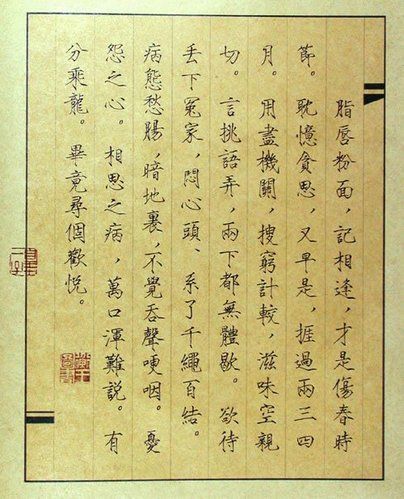 脂唇粉面，記相逢，才是傷春時
節。耽憶貪思，又早是，捱過兩三四
月。用盡機關，搜窮計較，滋味空親
切。言挑語弄，兩下都無體歇。欲待
丟下冤家，悶心頭、系了千繩百結。
病態愁腸，暗地裏，不覺吞聲哽咽。憂
怨之心。相思之病，萬口渾難説。有
分乘龍。畢竟尋個歡悅。